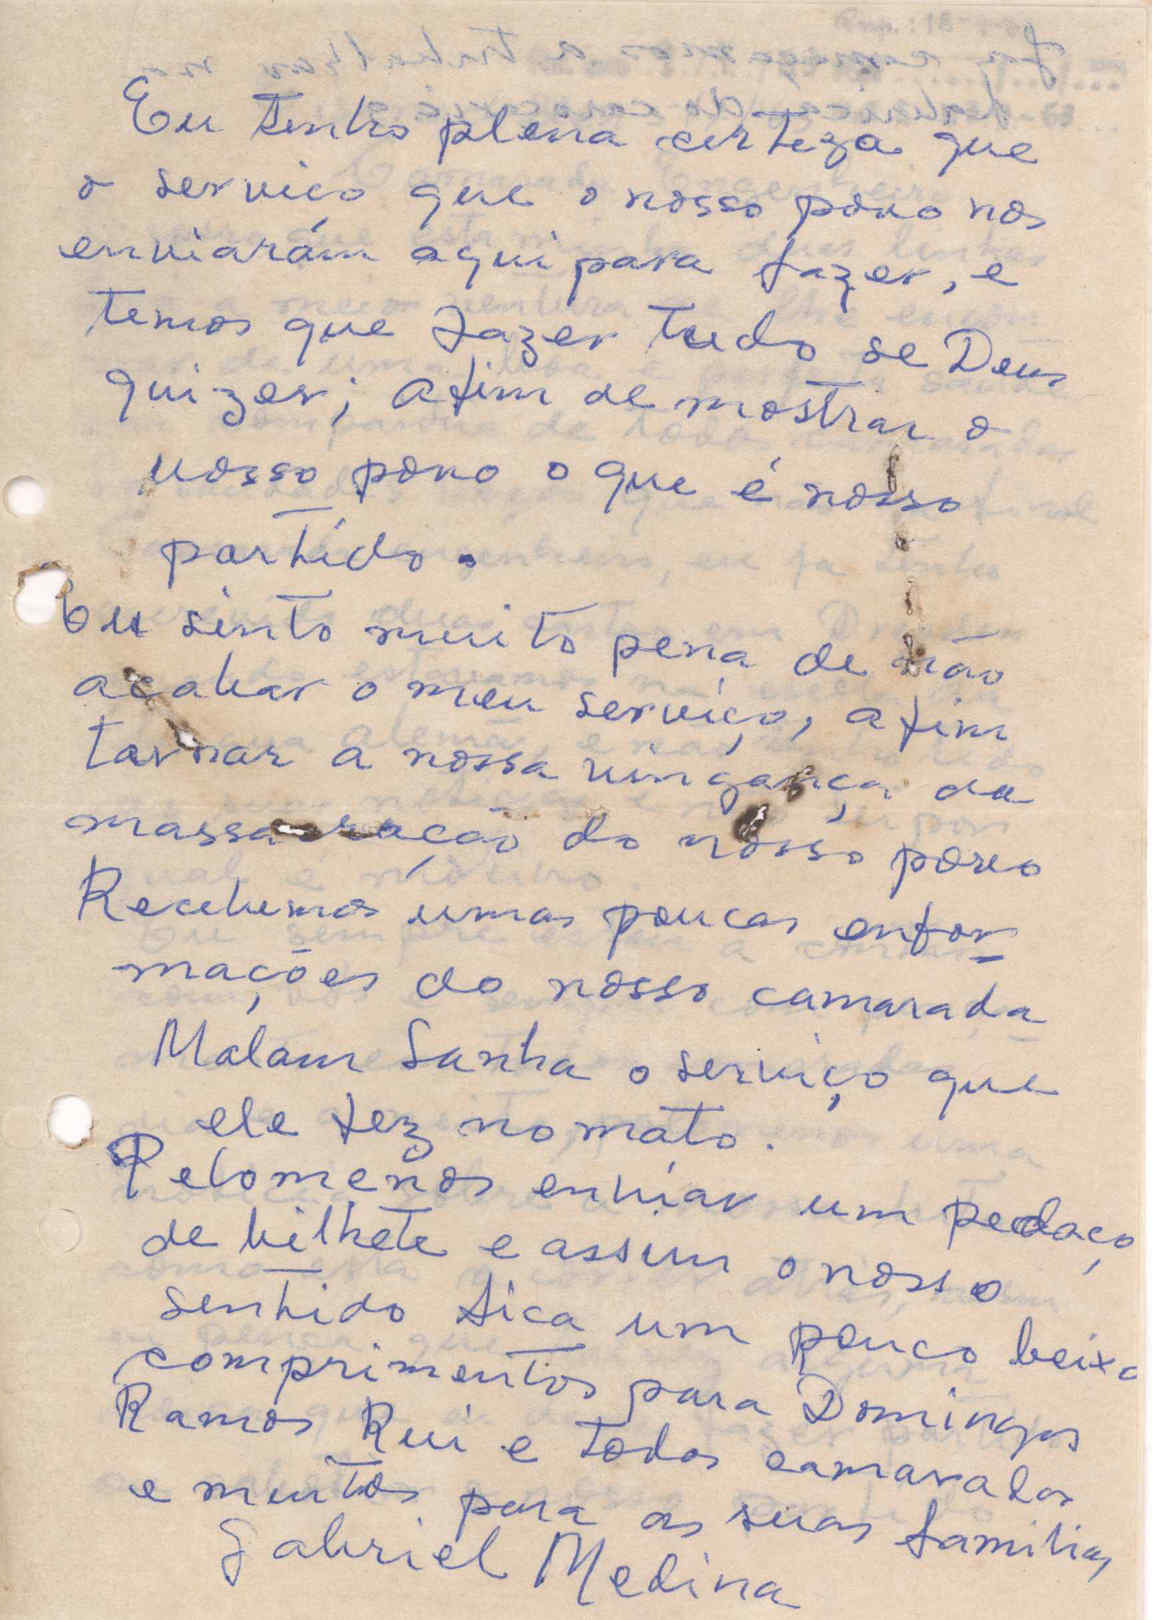 Eu tenho plena certeza que
o serviço que o nosso povo nos
enviarám aqui para fazer, e
temos que fazer tudo se Deus
quizer; afim de mostrar o
nosso povo o que é nosso
partido.
Eu sinto muito pena de não
acabar o meu serviço, afim
tornar a nossa vingança da
massacração do nosso povo
Recebemos umas poucas enfor-
mações do nosso camarada
Malam Sanha o serviço que
ele fez no mato.
Pelomenos enviar um pedaço
de bilhete e assim o nosso
sentido fica um pouco beixo
comprimentos para Domingos
Ramos Rui e todos camaradas
e muitos para as suas familias
Gabriel Medina